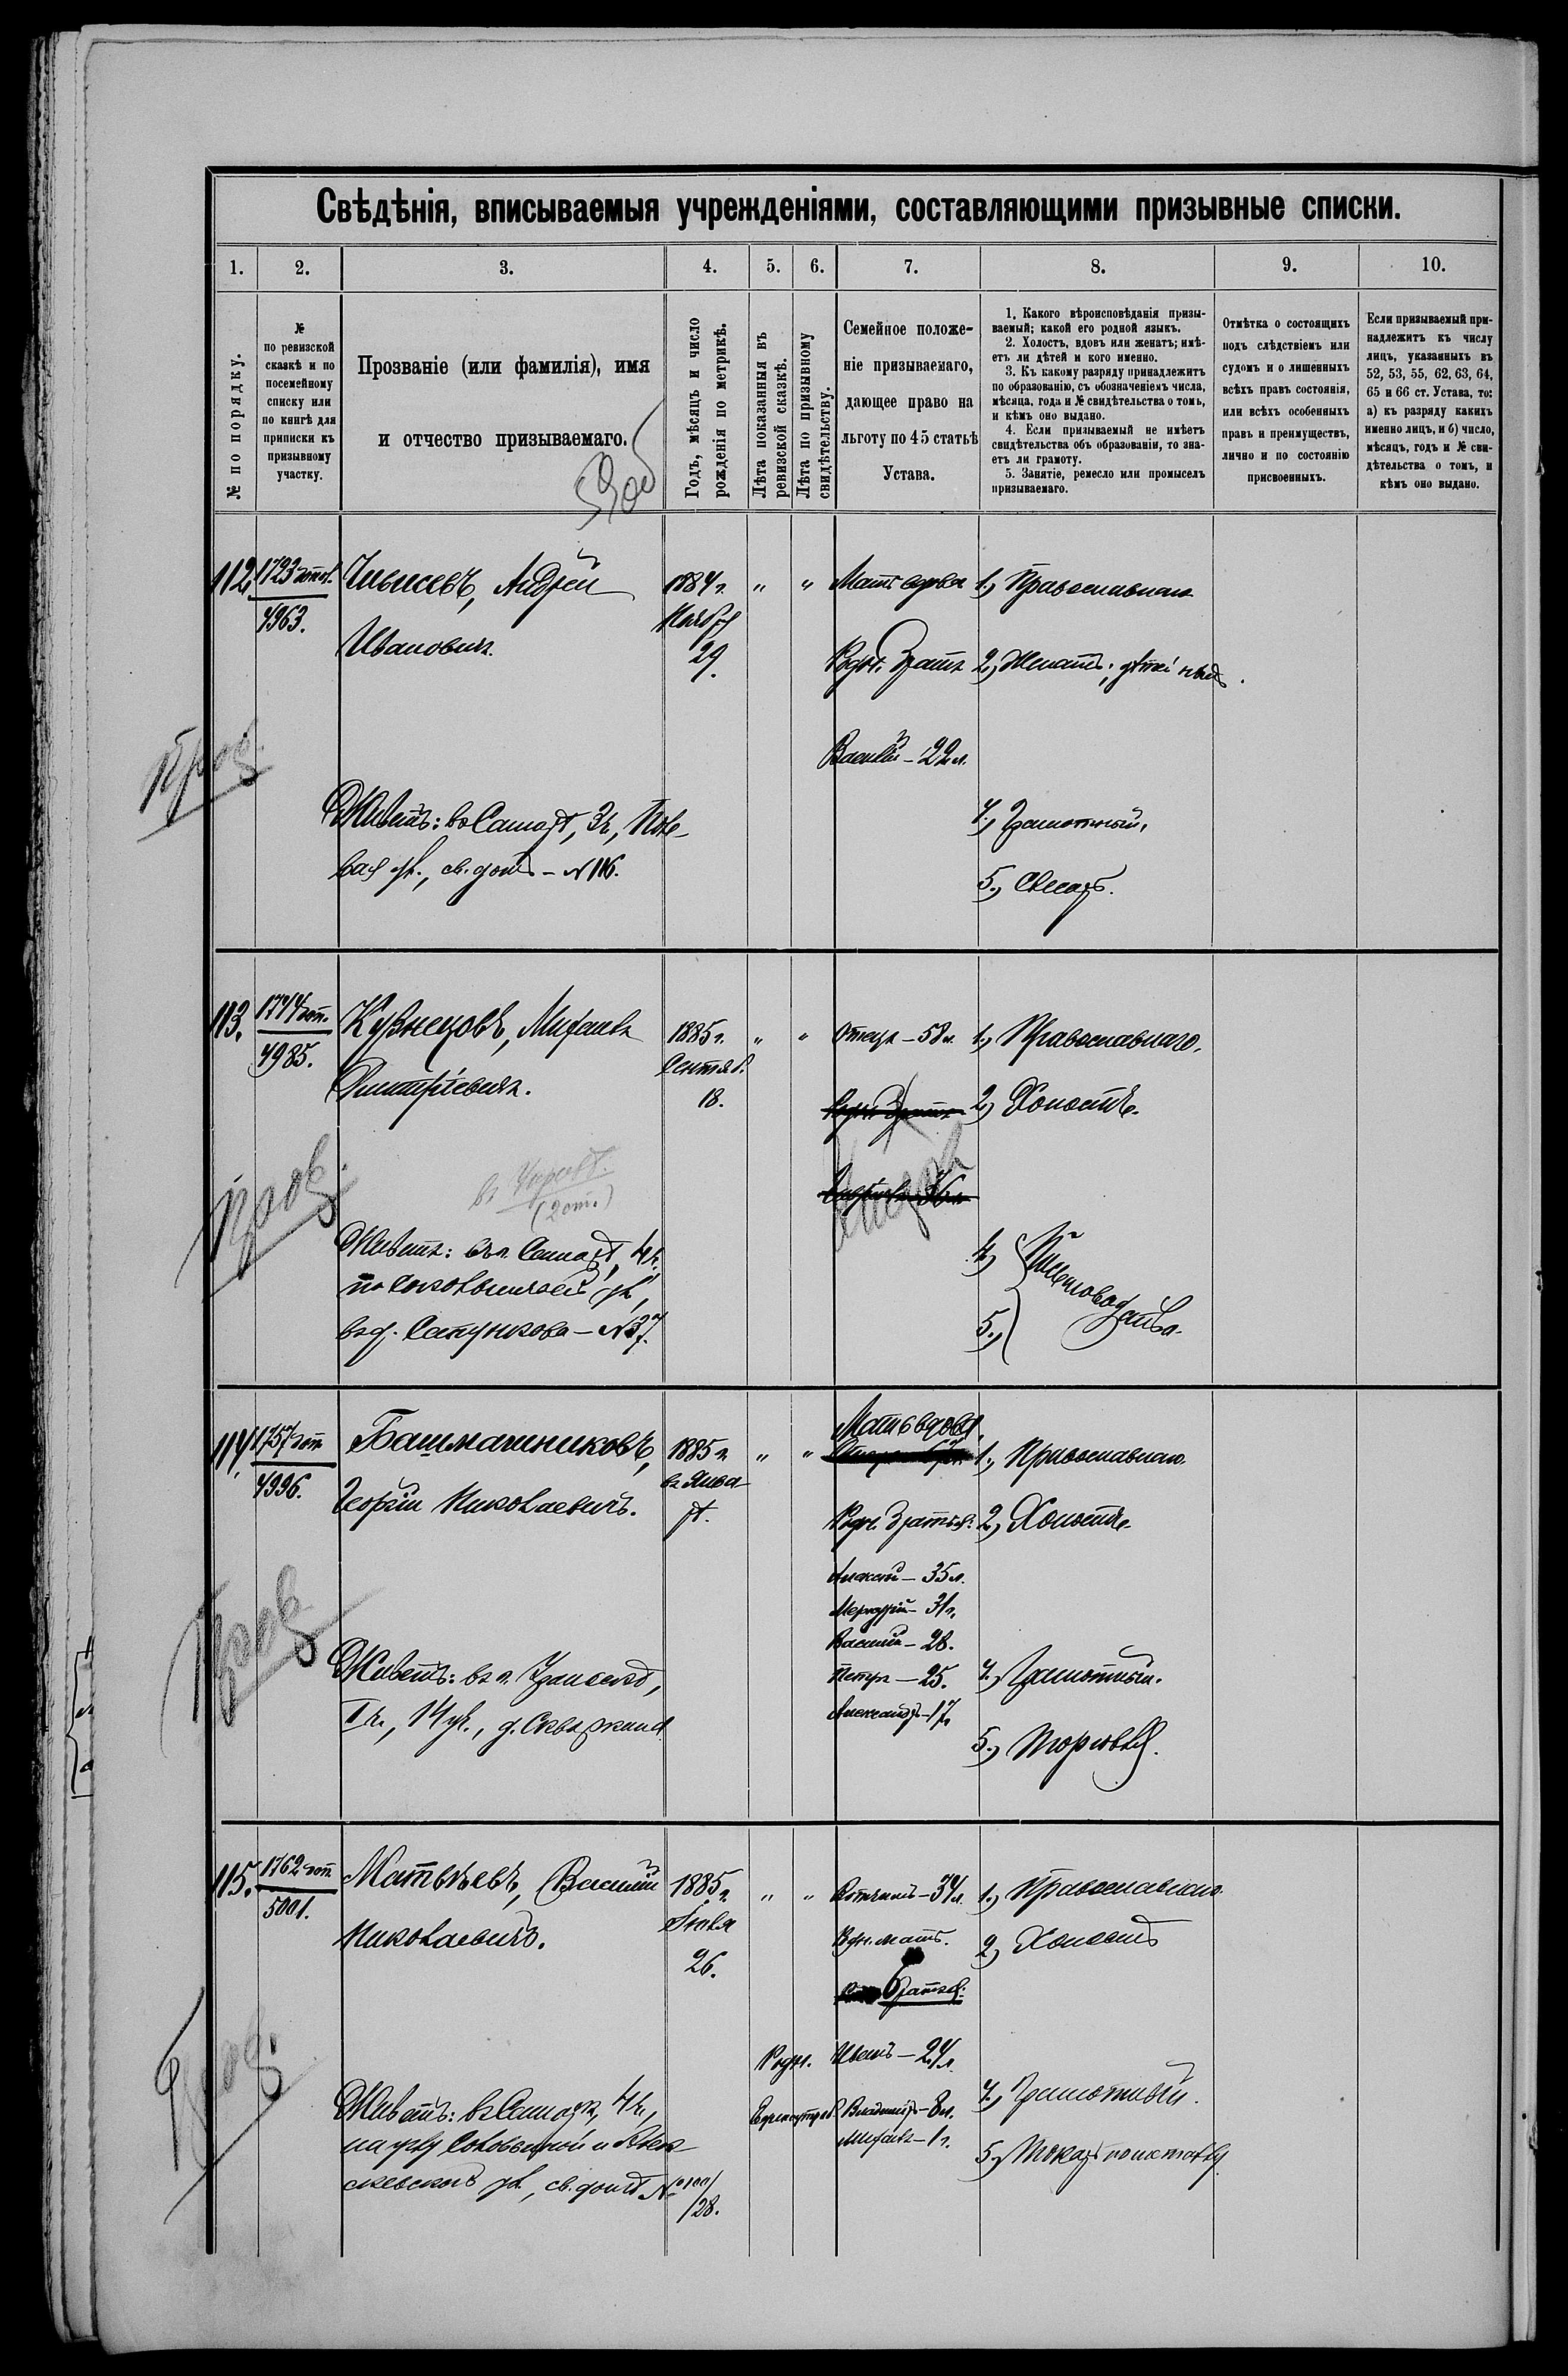 Свѣдѣнія, вписываемыя учрежденіями, составляющими призывные списки.
1. 2. 3. 4. 5. 6. 7. 8. 9. 10.
№ по порядку.
№
по ревизской
сказкѣ и по
посемейному
списку или
по книгѣ для
приписки къ
призывному
участку.
Прозваніе (или фамилія), имя
и отчество призываемаго.
Годъ, мѣсяцъ и число
рожденія по метрикѣ.
Лѣта показанныя въ
ревизской сказкѣ.
Лѣта по призывному
свидѣтельству.
Семейное положе-
ніе призываемаго,
дающее право на
льготу по 45 статьѣ
Устава.
1. Какого вѣроисповѣданія призы-
ваемый; какой его родной языкъ.
2. Холостъ, вдовъ или женатъ; имѣ-
етъ ли дѣтей и кого именно.
3. Къ какому разряду принадлежитъ
по образованію, съ обозначеніемъ числа,
мѣсяца, года и № свидѣтельства о томъ,
и кѣмъ оно выдано.
4. Если призываемый не имѣетъ
свидѣтельства объ образованіи, то зна-
етъ ли грамоту.
5. Занятіе, ремесло или промыселъ
призываемаго.
Отмѣтка о состоящихъ
подъ слѣдствіемъ или
судомъ и о лишенныхъ
всѣхъ правъ состоянія,
или всѣхъ особенныхъ
правъ и преимуществъ,
лично и по состоянію
присвоенныхъ.
Если призываемый при-
надлежитъ къ числу
лицъ, указанныхъ въ
52, 53, 55, 62, 63, 64,
65 и 66 ст. Устава, то:
а) къ разряду какихъ
именно лицъ, и б) число,
мѣсяцъ, годъ и № сви-
дѣтельства о томъ, и
кѣмъ оно выдано.
112.
1723
4963.
Андрей
Ивановичъ.
1884 г.
Ноября
29.
" "
Мать вдова
Родн. братъ
Василій – 22 л.
1.) Православнаго
2.) Женатъ; дѣтей нѣтъ.
4.) Грамотный.
5.) Слесарь.
Пров.
Живетъ: въ Самарѣ, 3 ч., Поле-
вая ул., св. домъ – № 116.
113.
1744
4985.
Кузнецовъ, Михаилъ
Дмитріевичъ.
1885 г.
Сентяб.
18.
" "
Отецъ – 58 л.
1.) Православнаго.
2.) Холостъ.
4.)
5.)
Пров.
Живетъ: въ г. Самарѣ, 4 ч.
по Соловьиной ул.,
въ д. Сапункова – № 37.
114.
1757
4996.
Башмашниковъ,
Георгій Николаевичъ.
1885 г.
въ Янва-
рѣ.
" "
Мать вдова.
Родн. братья:
Алексѣй – 35 л.
Меркурій – 31 г.
Василій – 28.
Петръ – 25.
Александръ – 17.
1.) Православнаго.
2.) Холостъ.
4.) Грамотный.
5.) Торговля.
Пров.
115.
1762
5001.
Матвѣевъ, Василій
Николаевичъ.
1885 г.
Января
26.
" "
Вотчимъ – 34 л.
Родн. мать.
братья:
Родн. Иванъ – 24 л.
Единоутроб. Владиміръ – 8 л.
Михаилъ – 1 г.
1.) Православнаго.
2.) Холостъ
4.) Грамотный.
5.) Токарь по металлу.
Пров.
Живетъ: въ Самарѣ, 4 ч.,
на углу Соловьиной и
ул., св. домъ № 100/28.